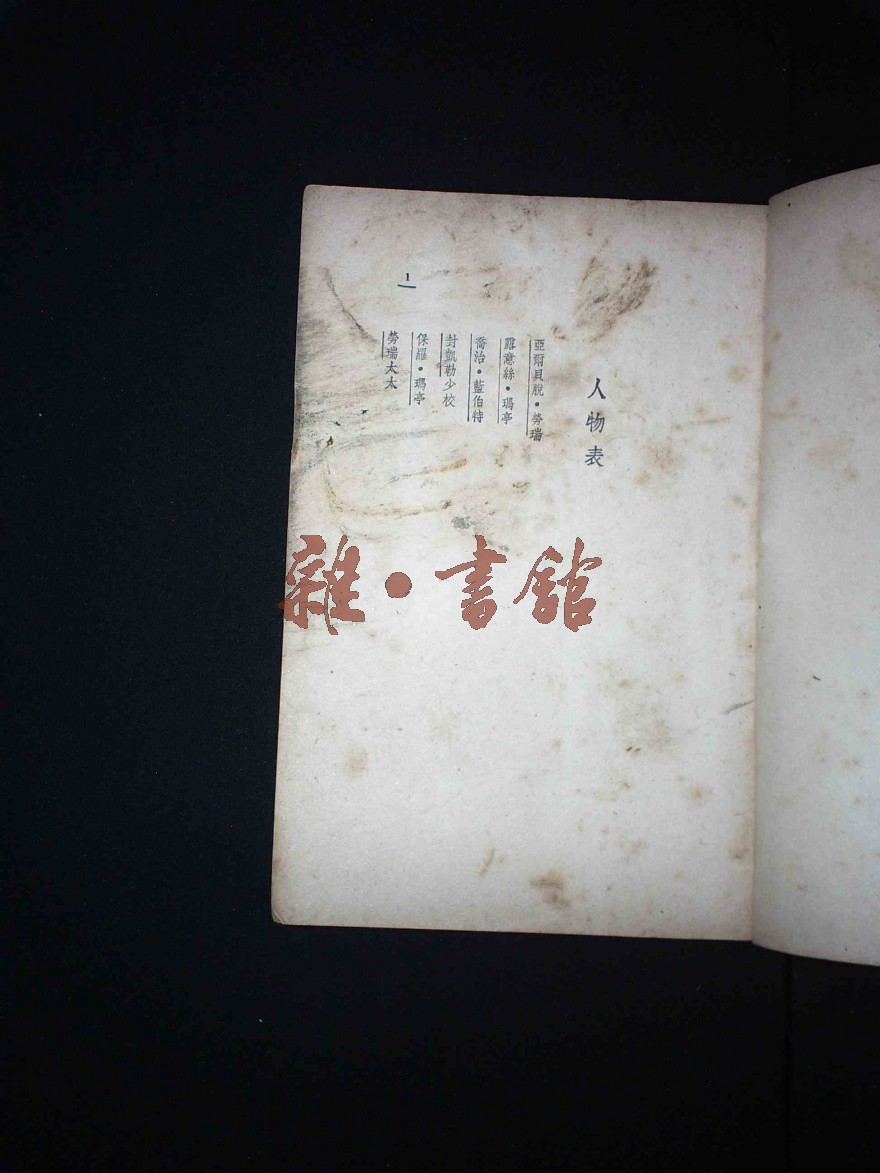 人物表
亞爾貝脫•勞瑞
露意絲•瑪亭
喬治•藍伯特
封凱勒少校
保羅•瑪亭
勞瑞太太
1
雜•書館